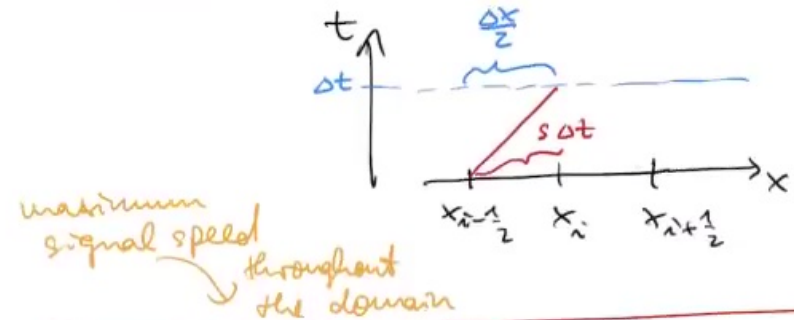 t
Δx/2
Δt
s Δt
x
x_{i-1/2} x_i x_{i+1/2}
maximum
signal speed
throughout
the domain